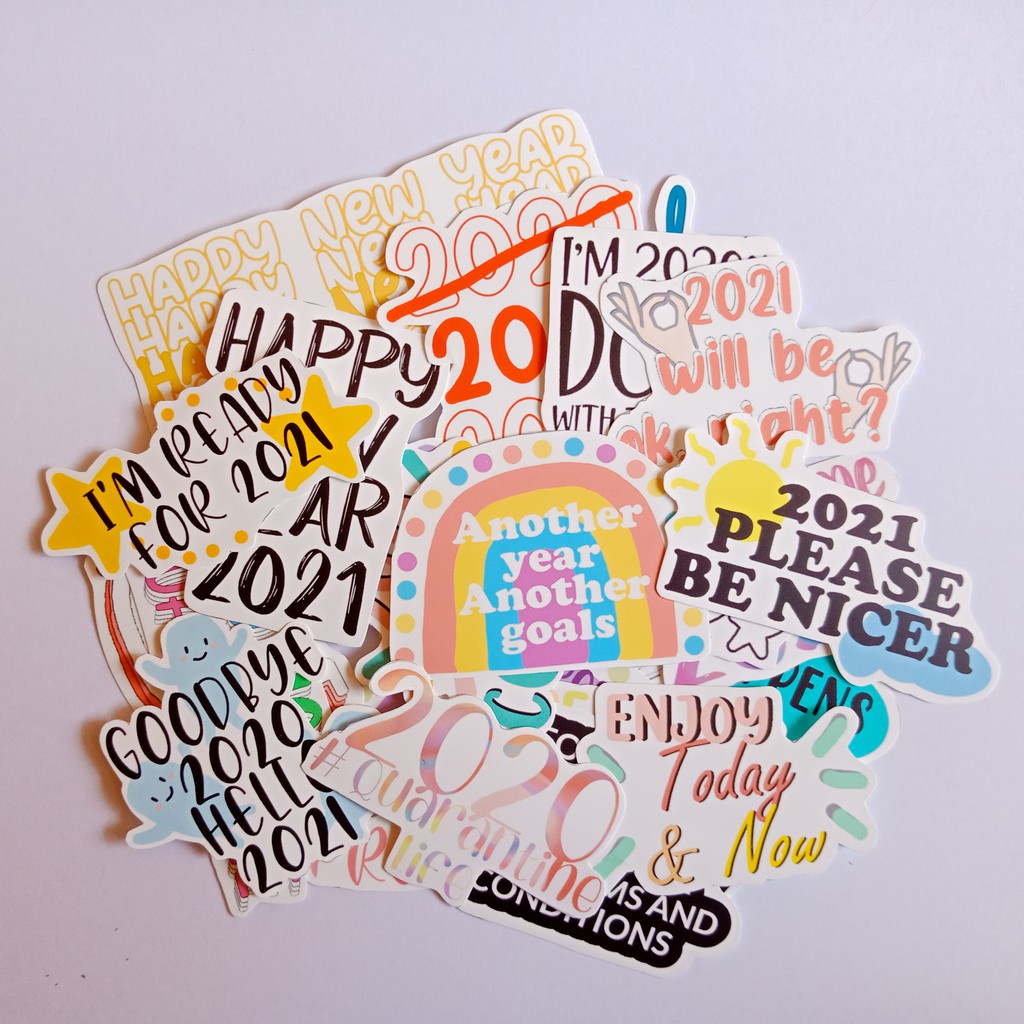 HAPPY NEW YEAR
HAPPY NEW YEAR
2020
20
I'M 2020
DO
WITH
2021
will be
ok, right?
HAPPY
AR
2021
I'M READY
FOR 2021
Another
year
Another
goals
2021
PLEASE
BE NICER
GOODBYE
2020
HELLO
2021
2020
#quarantine
life
ENJOY
Today
& Now
PENS
MS AND
CONDITIONS